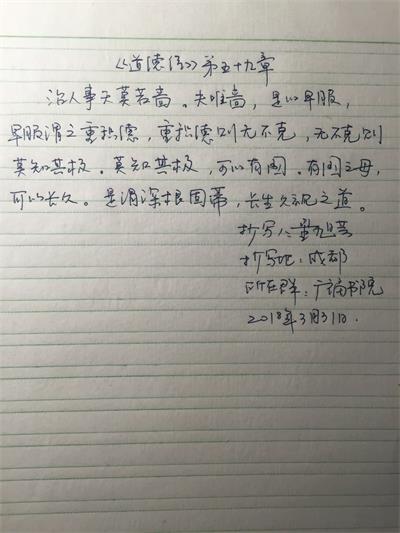 《道德经》第五十九章
治人事天莫若啬。夫唯啬，是以早服，
早服谓之重积德，重积德则无不克，无不克则
莫知其极。莫知其极，可以有国。有国之母，
可以长久。是谓深根固蒂，长生久视之道。
抄写人：
抄写地：成都
所在群：广涵书院
2018年3月31日.